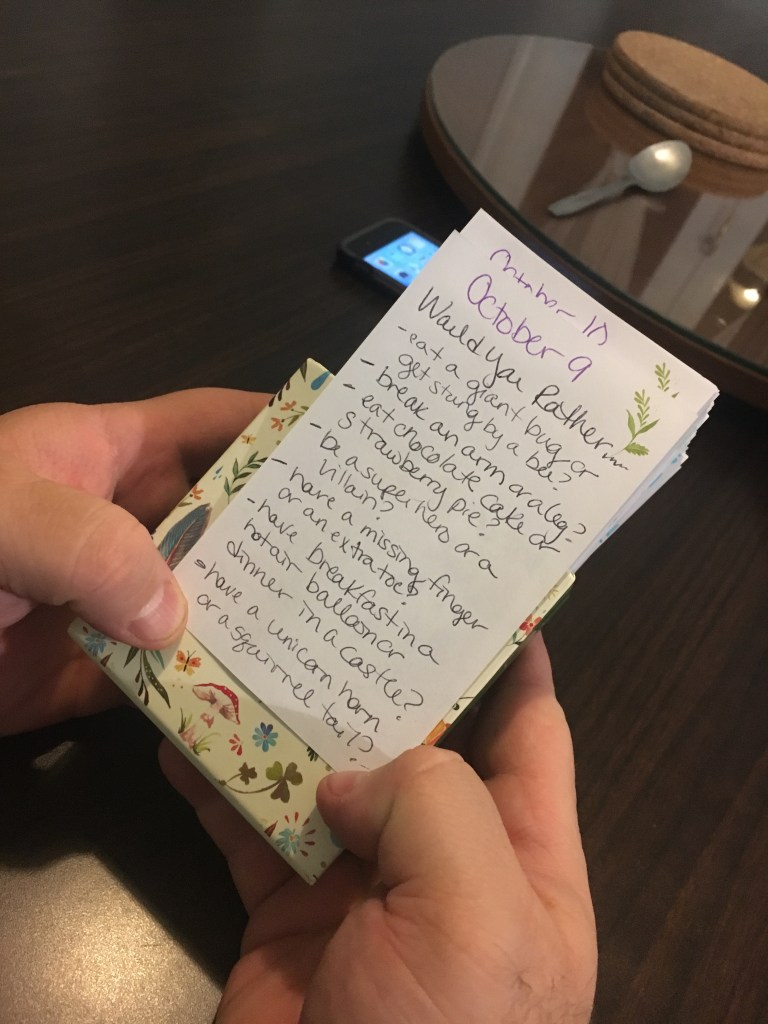 October 9
Would you Rather...
- eat a giant bug or
get stung by a bee?
- break an arm or a leg?
- eat chocolate cake or
strawberry pie?
- be a superhero or a
villain?
- have a missing finger
or an extra toe?
- have breakfast in a
hot air balloon or
dinner in a castle?
- have a unicorn horn
or a squirrel tail?